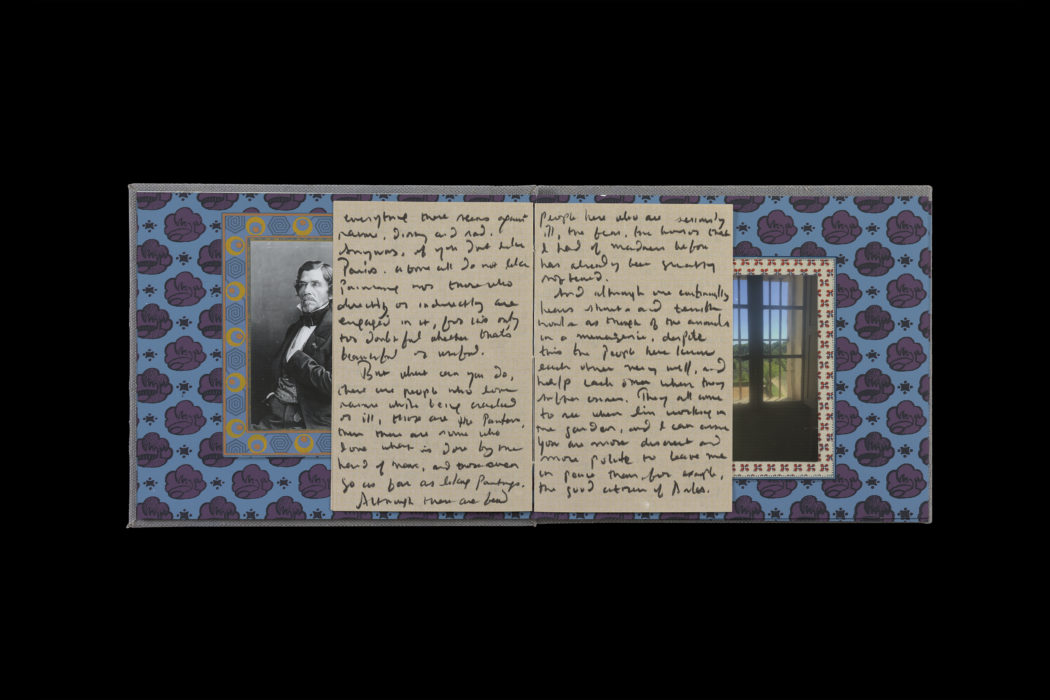 everytime there seems against
nature, dirty and sad.
Anyways, if you don't like
Paris. above all do not like
Painting nor those who
directly or indirectly are
engaged in it, for it's only
too doubtful whether that's
beautiful or useful.
But what can you do,
there are people who love
nature while being cracked
or ill, those are the Painters,
then there are some who
love what is done by the
hand of man, and these even
go as far as liking Paintings.
Although there are few
People here who are seriously
ill, the fear, the horror that
I had of madness before
has already been greatly
softened.
And although one continually
hears shouts and terrible
howls as though of the animals
in a menagerie, despite
this the People here know
each other very well, and
help each other when they
suffer crises. They all come
to see when I'm working in
the garden, and I can assure
you are more discreet and
more polite to leave me
in peace than, for example,
the good citizens of Arles.